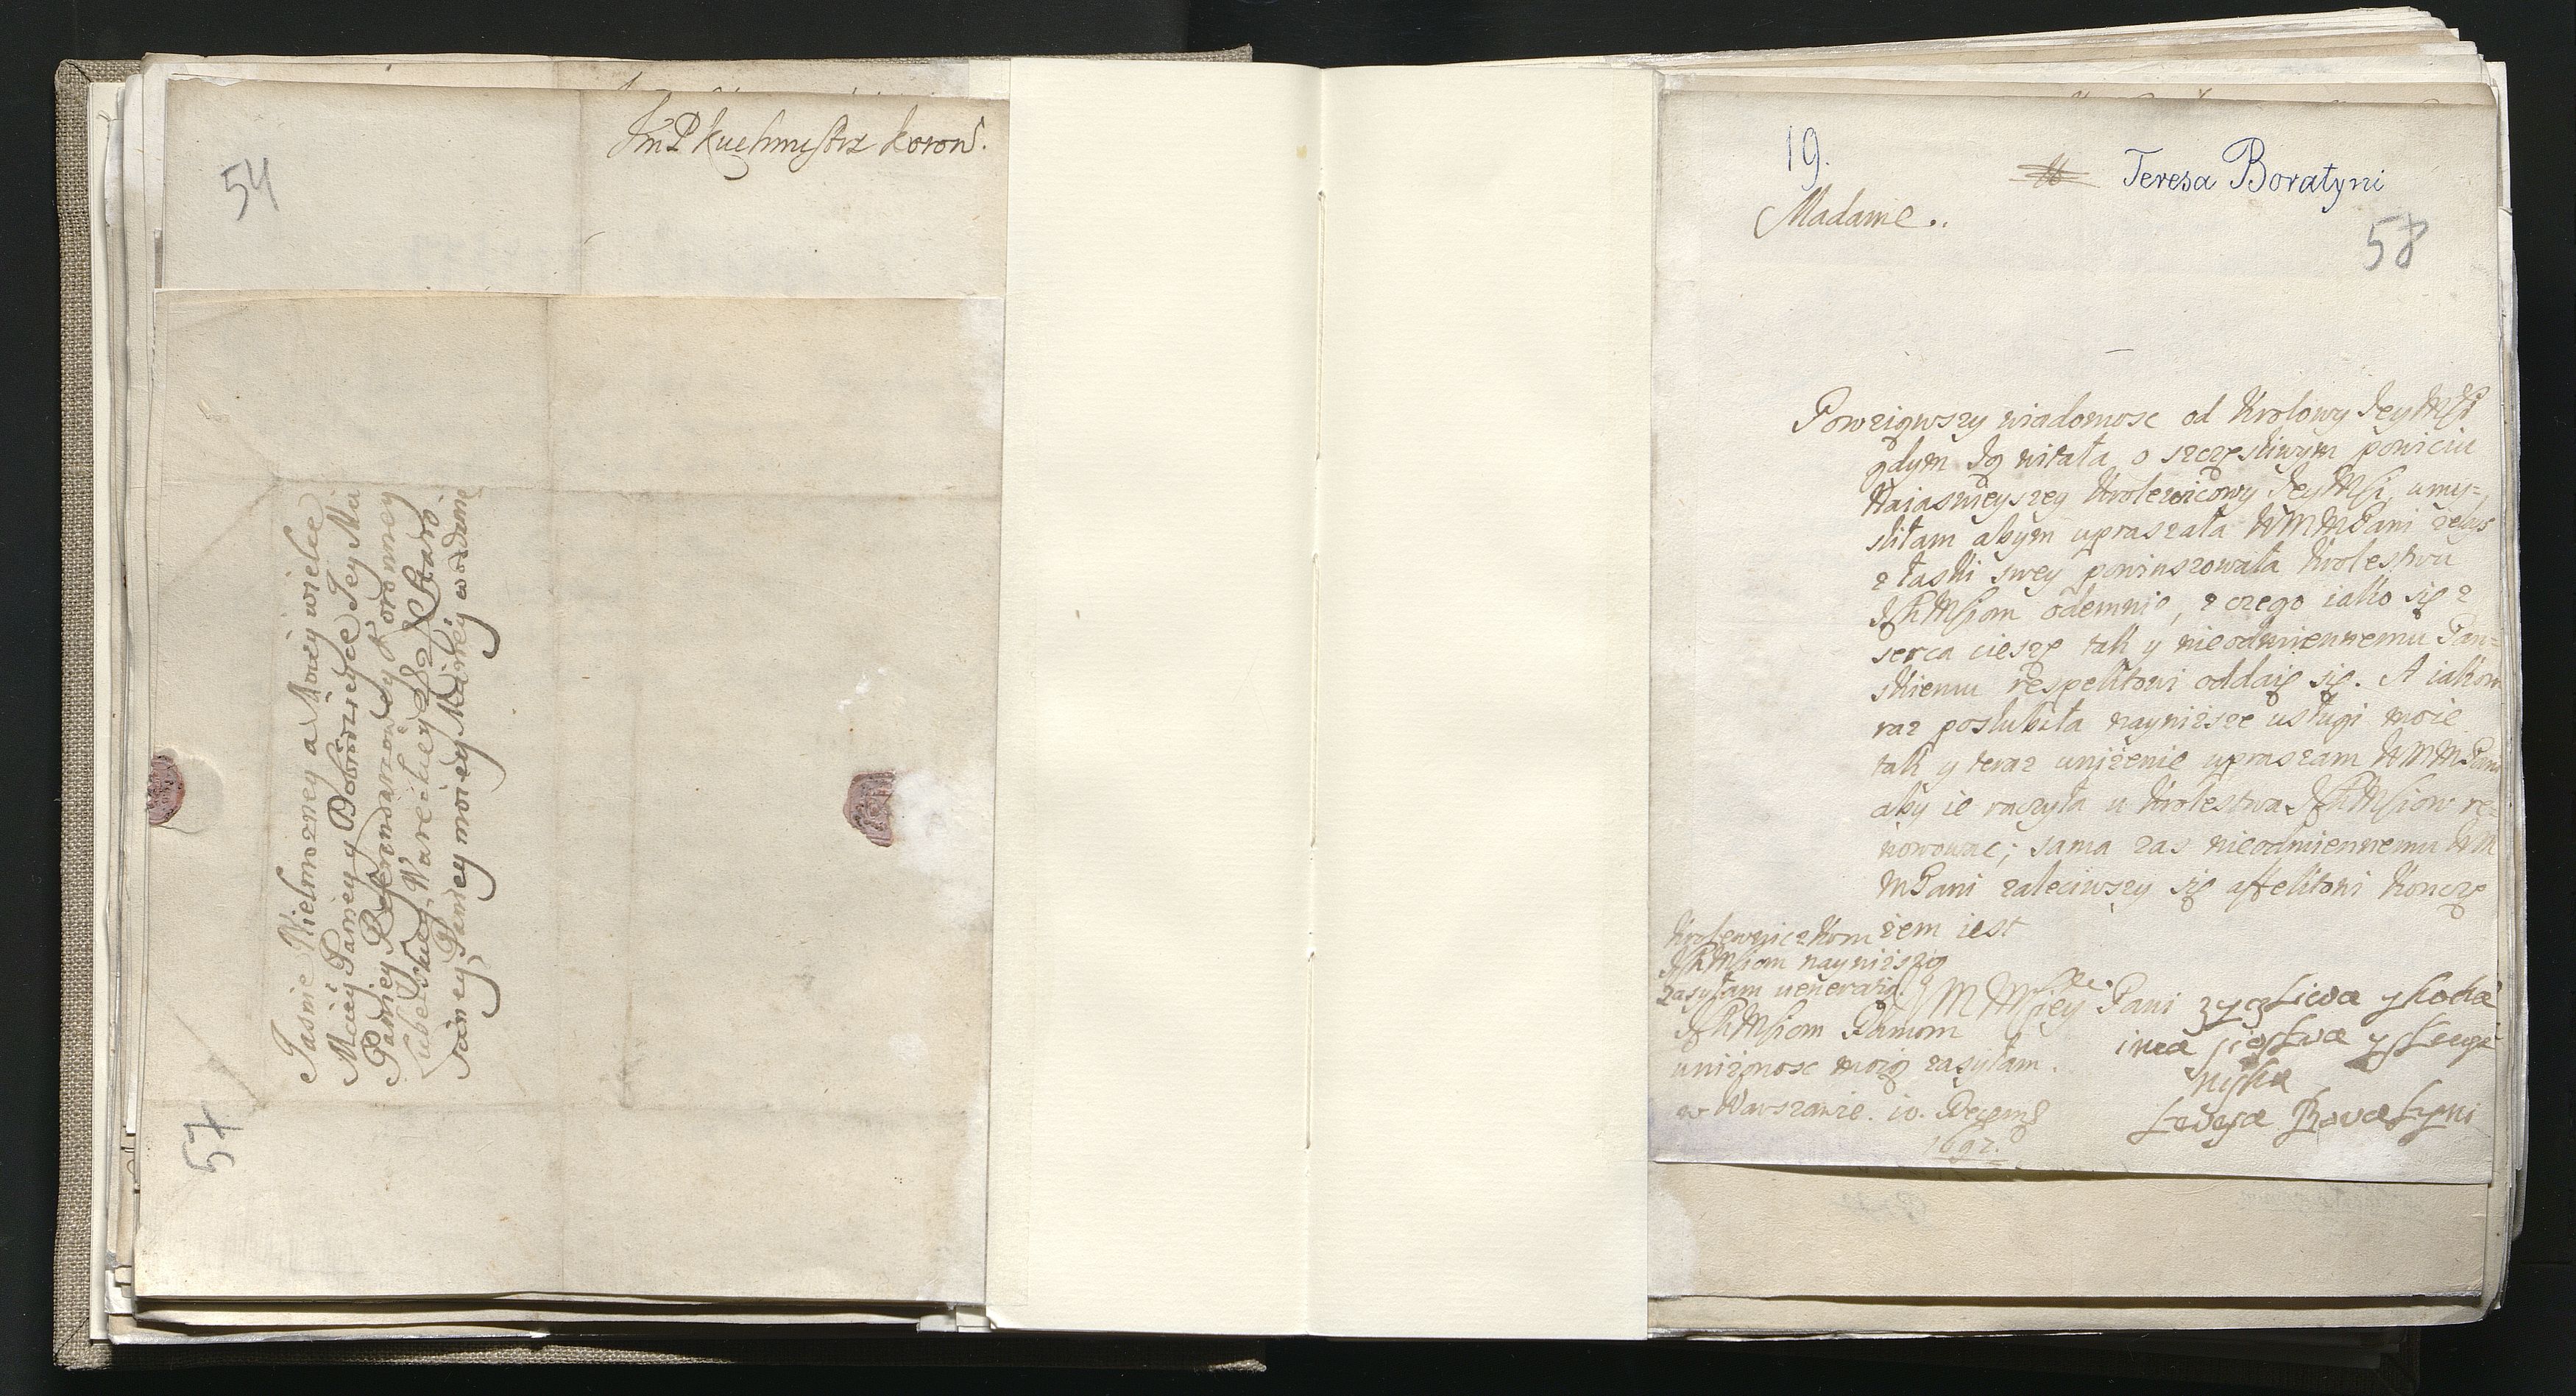 54
JmP kuchmistrz koron.
Jasnie Wielmozney a Moiey wielce
Mciey Paniey y Dobrodzieyce Jey Mci
Paniey Referendarzowey Koronney
Lubelskiey, Wareckiey &c &c Staro
sciney, Paniey moiey Mciwey oddanie
57
19.
Teresa Boratyni
58
Madame.
Powziąwszy wiadomosc od Krolowy JeyMsci
gdym Ją witała o szczęsliwym powiciu
Naiasnieyszey Krolewicowy JeyMsci, umy=
sliłam abym upraszała WMMPani zebys
z łaski swey powinszowała Krolestwu
IchMsciom odemnie, z czego iako się z
serca cieszę tak y nieodmiennemu Pan=
skiemu respektowi oddaię się. A iakom
raz poslubiła nayniższe usługi moie
tak y teraz uniżenie upraszam WMMPani
aby ie raczyła u Krolestwa IchMsciow re=
nowować; sama zas nieodmiennemu WM
MPani zaleciwszy się affektowi koncze
żem iest
Krolewniczkom
IchMsciom nayniższą
zasyłam weneracią
IchMsciom Damom
uniżonosc moię zasyłam.
w Warszawie. 10. Decemb
1692.
Pani zyczliwa y kocha
iąca siostra y sługa
niska
teresa Boratyni